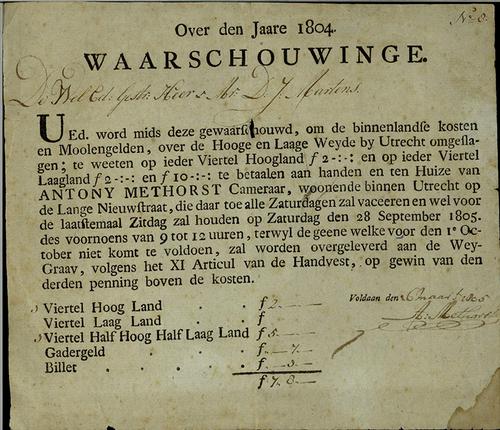 No. 8.
Over den Jaare 1804.
WAARSCHOUWINGE.
De Wel Ed: Gestr: Heer Mr. D. J. Martens.
UEd. word mids deze gewaarschouwd, om de binnenlandse kosten
en Moolengelden, over de Hooge en Laage Weyde by Utrecht omgesla-
gen; te weeten op ieder Viertel Hoogland ƒ 2-:-: en op ieder Viertel
Laagland ƒ 2-:-: en ƒ 10-:-: te betaalen aan handen en ten Huize van
ANTONY METHORST Cameraar, woonende binnen Utrecht op
de Lange Nieuwstraat, die daar toe alle Zaturdagen zal vaceeren en wel voor
de laatstemaal Zitdag zal houden op Zaturdag den 28 September 1805.
des voornoens van 9 tot 12 uuren, terwyl de geene welke voor den 1e Oc-
tober niet komt te voldoen, zal worden overgeleverd aan de Wey-
Graav, volgens het XI Articul van de Handvest, op gewin van den
derden penning boven de kosten.
Voldaan den maart 1805
Viertel Hoog Land . . ƒ 2.
A. Methorst
Viertel Laag Land . . ƒ
Viertel Half Hoog Half Laag Land ƒ 5.
Gadergeld . . . ƒ . - 7. -
Billet . . . . ƒ . - 3. -
ƒ 7. 8 -